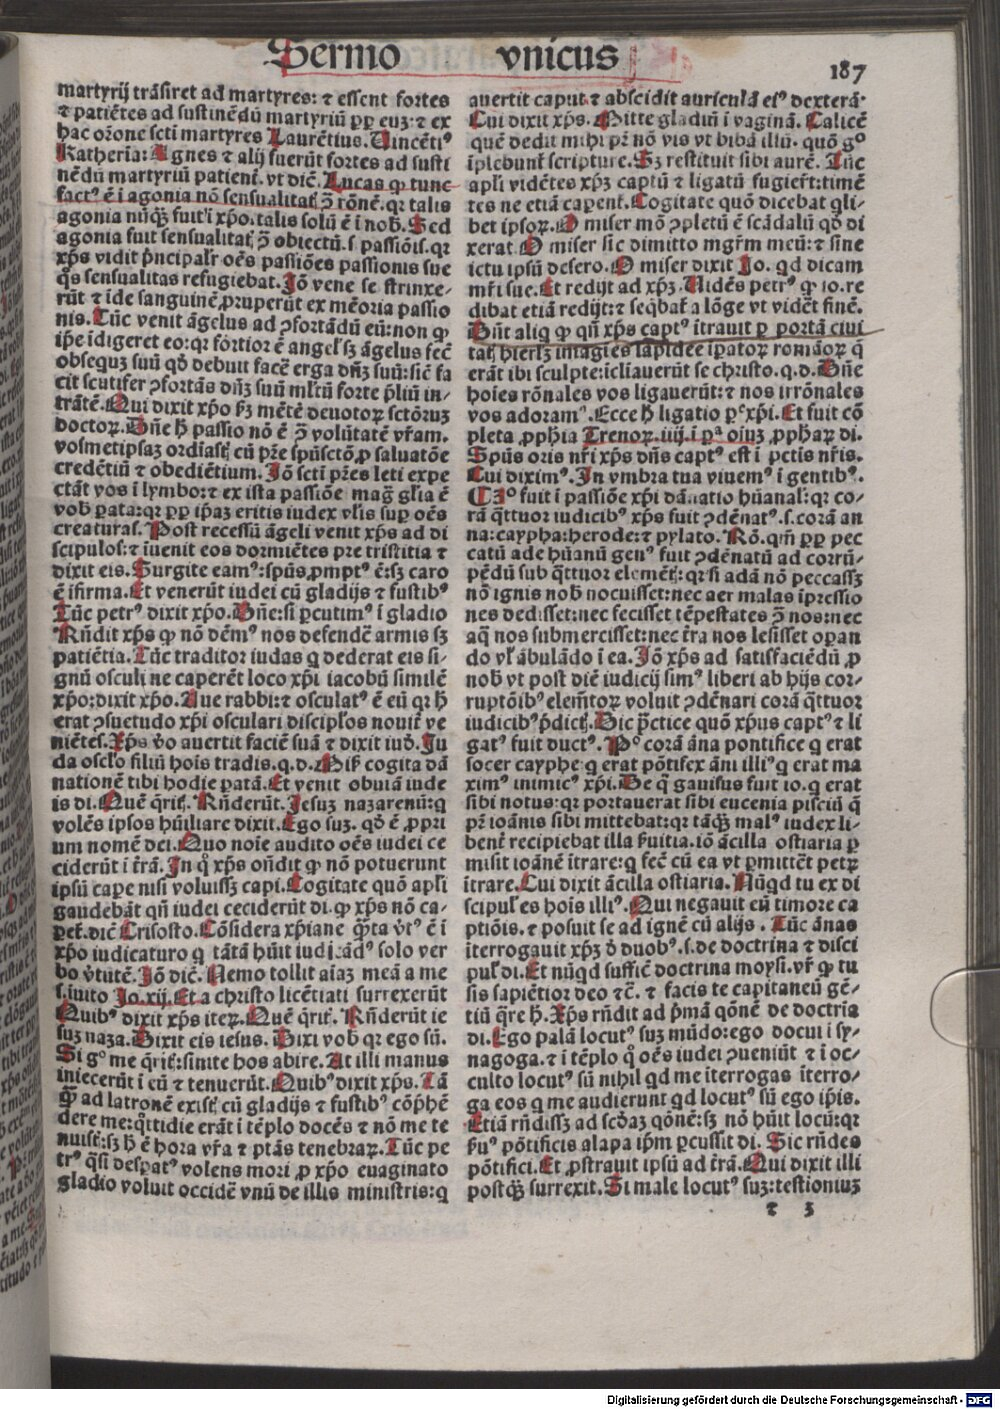 Sermo vnicus
187
martyrij trāsiret ad martyres: ⁊ essent fortes
⁊ patiētes ad sustinēdū martyriū ꝓp euz: ⁊ ex
hac orōne scti martyres Laurētius. Uincēti⁹
Katherīa: Agnes ⁊ alij fuerūt fortes ad susti
nēdū martyriū patient᷑. vt dic̄. Lucas ꝙ tunc
fact⁹ ē i agonia nō sensualitatꝭ ꝯ rōnē. qꝛ talis
agonia nūqꝫ fuit i xp̄o. talis solū ē i nob̄. Sed
agonia fuit sensualitatꝭ ꝯ obiectū. s. passiōis. qꝛ
xp̄s vidit p̄ncipalr̄ oēs passiōes passionis sue
q̄s sensualitas refugiebat. Jō vene se strinxe-
rūt ⁊ īde sanguinē ꝓruperūt ex mēoria passio
nis. Tūc venit āgelus ad ꝯfortādū eū: non ꝙ
ip̄e īdigeret eo: qꝛ fortior ē angelꝭ sꝫ āgelus fec̄
obsequꝫ suū qd̄ debuit facē erga dn̄ꝫ suū: sic̄ fa
cit scutifer ꝯfortās dn̄ꝫ suū mltū forte p̄liū in-
trātē. Qui dixit xp̄o hꝫ mētē deuotoꝝ sctōruꝫ
doctoꝝ. Dn̄e h̄ passio nō ē ꝯ volūtatē vr̄am.
vosmetipsaꝫ ordīastꝭ cū pr̄e spūsctō ꝓ saluatōe
credētiū ⁊ obediētium. Jō scti pr̄es leti expe
ctāt vos i lymbo: ⁊ ex ista passiōe maḡ gl̄ia ē
vob̄ ꝑata: qꝛ ꝑp ip̄aꝫ eritis iudex vl̄is suꝑ oēs
creaturas. Post recessū āgeli venit xp̄s ad di
scipulos: ⁊ īuenit eos dormiētes pre tristitia ⁊
dixit eis. Surgite eam⁹: spūs ꝓmpt⁹ ē: sꝫ caro
ē ifirma. Et venerūt iudei cū gladijs ⁊ fustib⁹
Tūc petr⁹ dixit xp̄o. Dn̄e: si ꝑcutim⁹ i gladio
Rn̄dit xp̄s ꝙ nō dēm⁹ nos defendē armis sꝫ
patiētia. Tūc traditor iudas q dederat eis si-
gnū osculi ne caperēt loco xp̄i iacobū similē
xp̄o: dixit xp̄o. Aue rabbi: ⁊ osculat⁹ ē eū qꝛ h̄
erat ꝯsuetudo xp̄i osculari discipl̄os nouit᷑ ve
niētes. Xp̄s v̄o auertit faciē suā ⁊ dixit iud̄. Ju
da oscl̄o filiū hoīs tradis. q. d. Misꝭ cogita dā
nationē tibi hodie patā. Et venit obuiā iude
is di. Quē q̄ritꝭ. Rn̄derūt. Jesuꝫ nazarenū: q
volēs ipsos hūiliare dixit. Ego suꝫ. qd̄ ē ꝓpri
um nomē dei. Quo noīe audito oēs iudei ce
ciderūt i t̄rā. Jn q̊ xp̄s on̄dit ꝙ nō potuerunt
ipsū cape nisi voluissꝫ capi. Cogitate quō apl̄i
gaudebāt qn̄ iudei ceciderūt di. ꝙ xp̄s nō ca-
ꝑet᷑. dic̄ Crisosto. Cōsidera xp̄iane q̄ta v̄t⁹ ē i
xp̄o iudicaturo q tātā hūit iudicādꝰ solo ver
bo v̄tutē. Jō dic̄. Nemo tollit aīaꝫ meā a me
s. iuito Jo. xij. Et a christo licētiati surrexerūt
Quib⁹ dixit xp̄s iteꝝ. Quē q̄ritꝭ. Rn̄derūt ie
suꝫ naza. Dixit eis iesus. Dixi vob̄ qꝛ ego sū.
Si g⁰ me q̄ritꝭ: sinite hos abire. At illi manus
iniecerūt i eū ⁊ tenuerūt. Quib⁹ dixit xp̄s. Tā
q̄ꝫ ad latronē existꝭ cū gladijs ⁊ fustib⁹ cōp̄hē
dere me: q̊ttidie erāt i tēplo docēs ⁊ nō me te
nuistꝭ: sꝫ h̄ ē hora vr̄a ⁊ ptās tenebraꝝ. Tūc pe
tr⁹ q̄si despat⁹ volens mori ꝓ xp̄o euaginato
gladio voluit occidē vnū de illis ministris: q
auertit caput ⁊ abscidit auriculā ei⁹ dexterā.
Cui dixit xp̄s. Mitte gladiū i vaginā. Calicē
quē dedit mihi pr̄ nō vis vt bibā illū. quō g⁰
iplebunt᷑ scripture. Sꝫ restituit sibi aurē. Tūc
apl̄i vidētes xp̄ꝫ captū ⁊ ligatū fugier̄t: timē
tes ne etiā capent᷑. Cogitate quō dicebat qli-
bet ipsoꝝ. O miser mō ꝯpletū ē scādalū qd̄ di
xerat. O miser sic dimitto mgr̄m meū: ⁊ sine
ictu ipsū desero. O miser dixit Jo. qd dicam
mr̄i sue. Et redijt ad xp̄ꝫ. Uidēs petr⁹ ꝙ io. re
dibat etiā redijt: ⁊ seq̄bat᷑ a lōge vt vidēt finē.
Dn̄t aliq ꝙ qn̄ xp̄s capt⁹ itrauit ꝑ portā ciui
tatꝭ hierlꝫ imagīes lapidee ip̄atoꝝ romāoꝝ q̄
erāt ibi sculpte: icliauerūt se christo. q. d. Dn̄e
hoīes rōnales vos ligauerūt: ⁊ nos irrōnales
vos adoram⁹. Ecce h̄ ligatio p⁰ xp̄i. Et fuit cō
pleta ꝓph̄ia Trenoꝝ. iiij. i ꝑa oīuꝫ ꝓph̄aꝝ di.
Spūs oris nr̄i xp̄s dn̄s capt⁹ est i pctis nr̄is.
Cui dixim⁹. Jn vmbra tua viuem⁹ i gentib⁹.
¶ 3⁰ fuit i passiōe xp̄i dānatio hūanalꝭ: qꝛ co-
rā q̄ttuor iudicib⁹ xp̄s fuit ꝯdēnat⁹. s. corā an
na: caypha: herode: ⁊ pylato. Rō. qm̄ ꝓp pec
catū ade hūanū gen⁹ fuit ꝯdēnatū ad corrū-
pēdū sub q̄ttuor elemētꝭ: qꝛ si adā nō peccassꝫ
nō ignis nob̄ nocuisset: nec aer malas īpressio
nes dedisset: nec fecisset tēpestates ꝯ nos: nec
aq̄ nos submersisset: nec t̄ra nos lesisset opan
do vl̄ ābulādo i ea. Jō xp̄s ad satisfaciēdū ꝓ
nob̄ vt post diē iudicij sim⁹ liberi ab hijs cor-
ruptōib⁹ elem̄toꝝ voluit ꝯdēnari corā q̄ttuor
iudicib⁹ p̄dictꝭ. Dic p̄ctice quō xp̄us capt⁹ ⁊ li
gat⁹ fuit duct⁹. P⁰ corā āna pontifice q erat
socer cayphe q erat pōtifex āni illi⁹ q erat ma
xim⁹ inimic⁹ xp̄i. De q̄ gauisus fuit io. q erat
sibi notus: qꝛ portauerat sibi eucenia pisciū q̄
pr̄ ioānis sibi mittebat: qꝛ tāqꝫ mal⁹ iudex li-
bent᷑ recipiebat illa ẜuitia. iō ācilla ostiaria ꝑ
misit ioānē itrare: q fec̄ cū ea vt ꝑmittēt petꝝ
itrare. Cui dixit ācilla ostiaria. Nūqd tu ex di
scipul̄ es hoīs illi⁹. Qui negauit eū timore ca
ptiōis. ⁊ posuit se ad ignē cū alijs. Tūc ānas
iterrogauit xp̄ꝫ d̄ duob⁹. s. de doctrina ⁊ disci
pul̄ di. Et nūqd suffic̄ doctrina moysi. vl̄ ꝙ tu
sis sapiētior deo ⁊c̄. ⁊ facis te capitaneū gē-
tiū q̄re h̄. Xp̄s rn̄dit ad p̄mā qōnē de doctria
di. Ego palā locut⁹ suꝫ mūdo: ego docui i sy-
nagoga. ⁊ i tēplo q̊ oēs iudei ꝯueniūt ⁊ i oc-
culto locut⁹ sū nihil qd me iterrogas iterro-
ga eos q me audierunt qd locut⁹ sū ego ip̄is.
Etiā rn̄dissꝫ ad scd̄aꝫ qōnē: sꝫ nō hūit locū: qꝛ
ẜu⁹ pōtificis alapa ip̄m ꝑcussit di. Sic rn̄des
pōtifici. Et ꝓstrauit ipsū ad t̄rā. Qui dixit illi
postqꝫ surrexit. Si male locut⁹ suꝫ: testioniuꝫ
⁊ 3
Digitalisierung gefördert durch die Deutsche Forschungsgemeinschaft - DFG